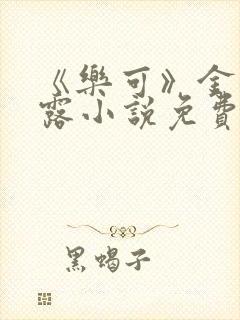 《樂可》金
露小說免費
黑蝎子